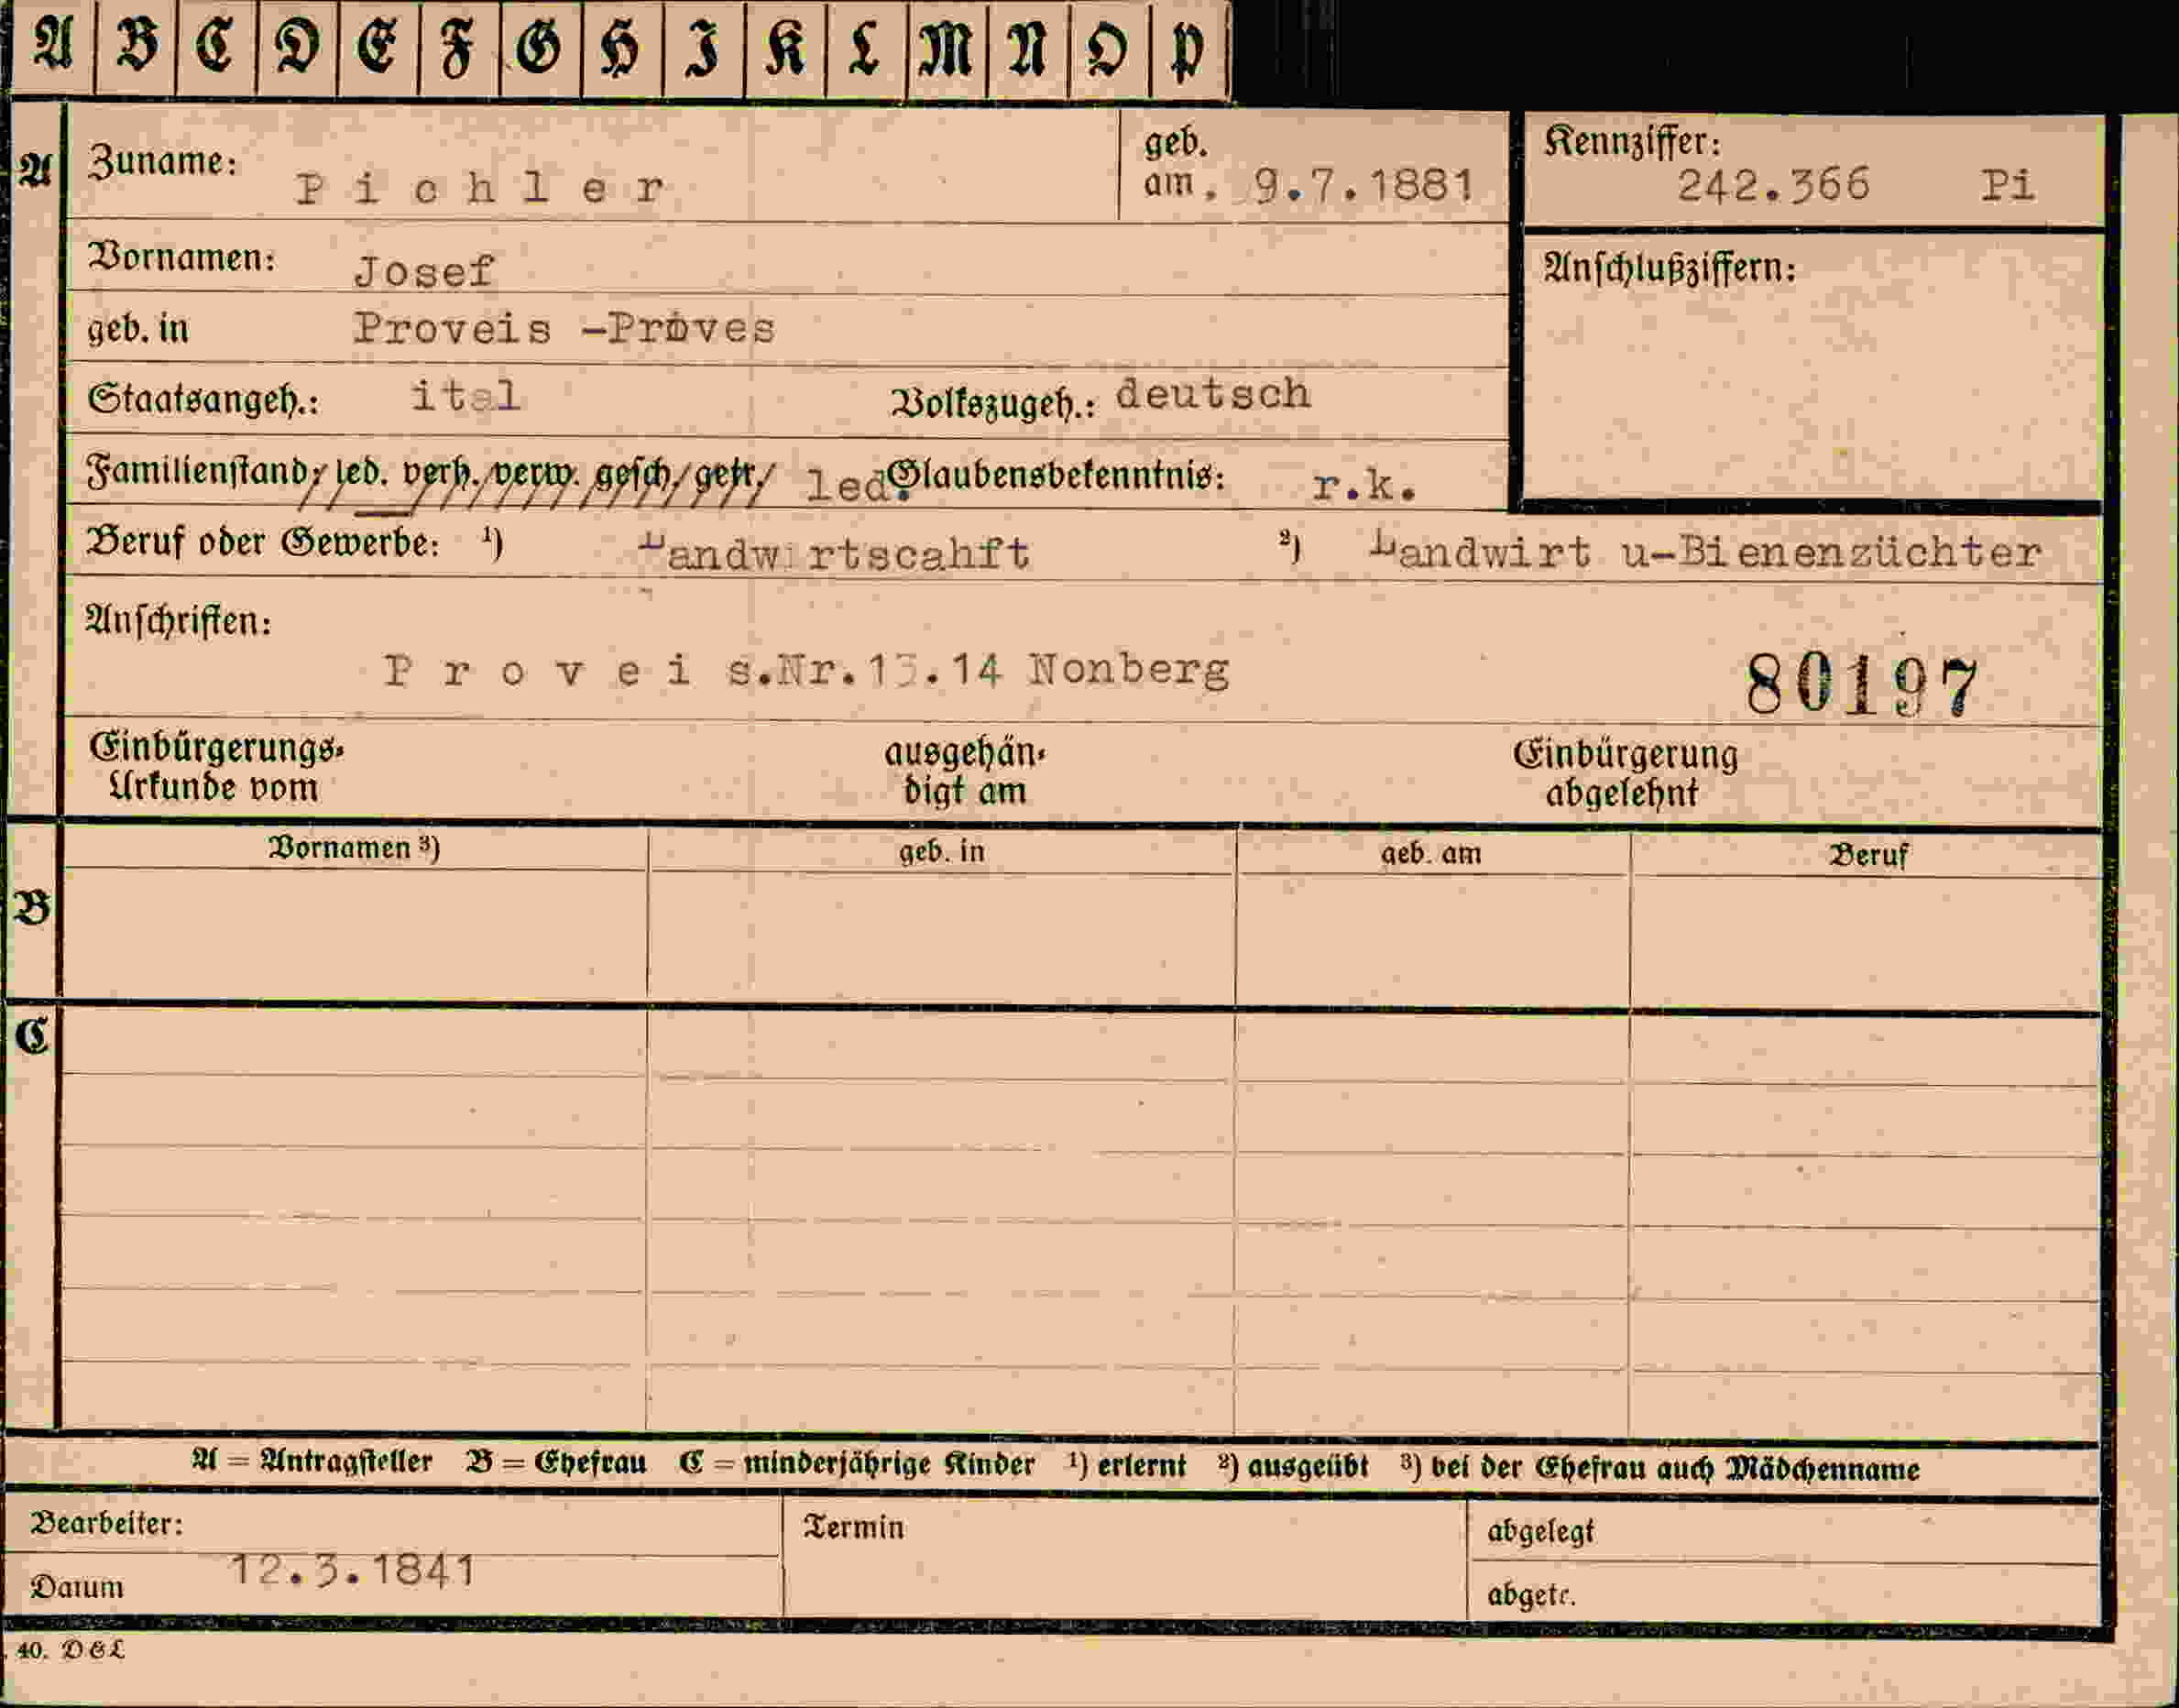 A B C D E F G H I K L M N O P
A Zuname: Pichler geb. am. 9.7.1881 Kennziffer: 242.366 Pi
Vornamen: Josef Anschlußziffern:
geb. in Proveis -Proves
Staatsangeh.: ital Volkszugeh.: deutsch
Familienstand: led. verh. verw. gesch. getr. led. Glaubensbekenntnis: r.k.
Beruf oder Gewerbe: ¹) Landwirtscahft ²) Landwirt u-Bienenzüchter
Anschriften:
Proveis.Nr.13.14 Nonberg 80197
Einbürgerungs- ausgehän- Einbürgerung
Urkunde vom digt am abgelehnt
Vornamen ³) geb. in geb. am Beruf
B
C
A = Antragsteller B = Ehefrau C = minderjährige Kinder ¹) erlernt ²) ausgeübt ³) bei der Ehefrau auch Mädchenname
Bearbeiter: Termin abgelegt
Datum 12.3.1841 abgetr.
40. DGL